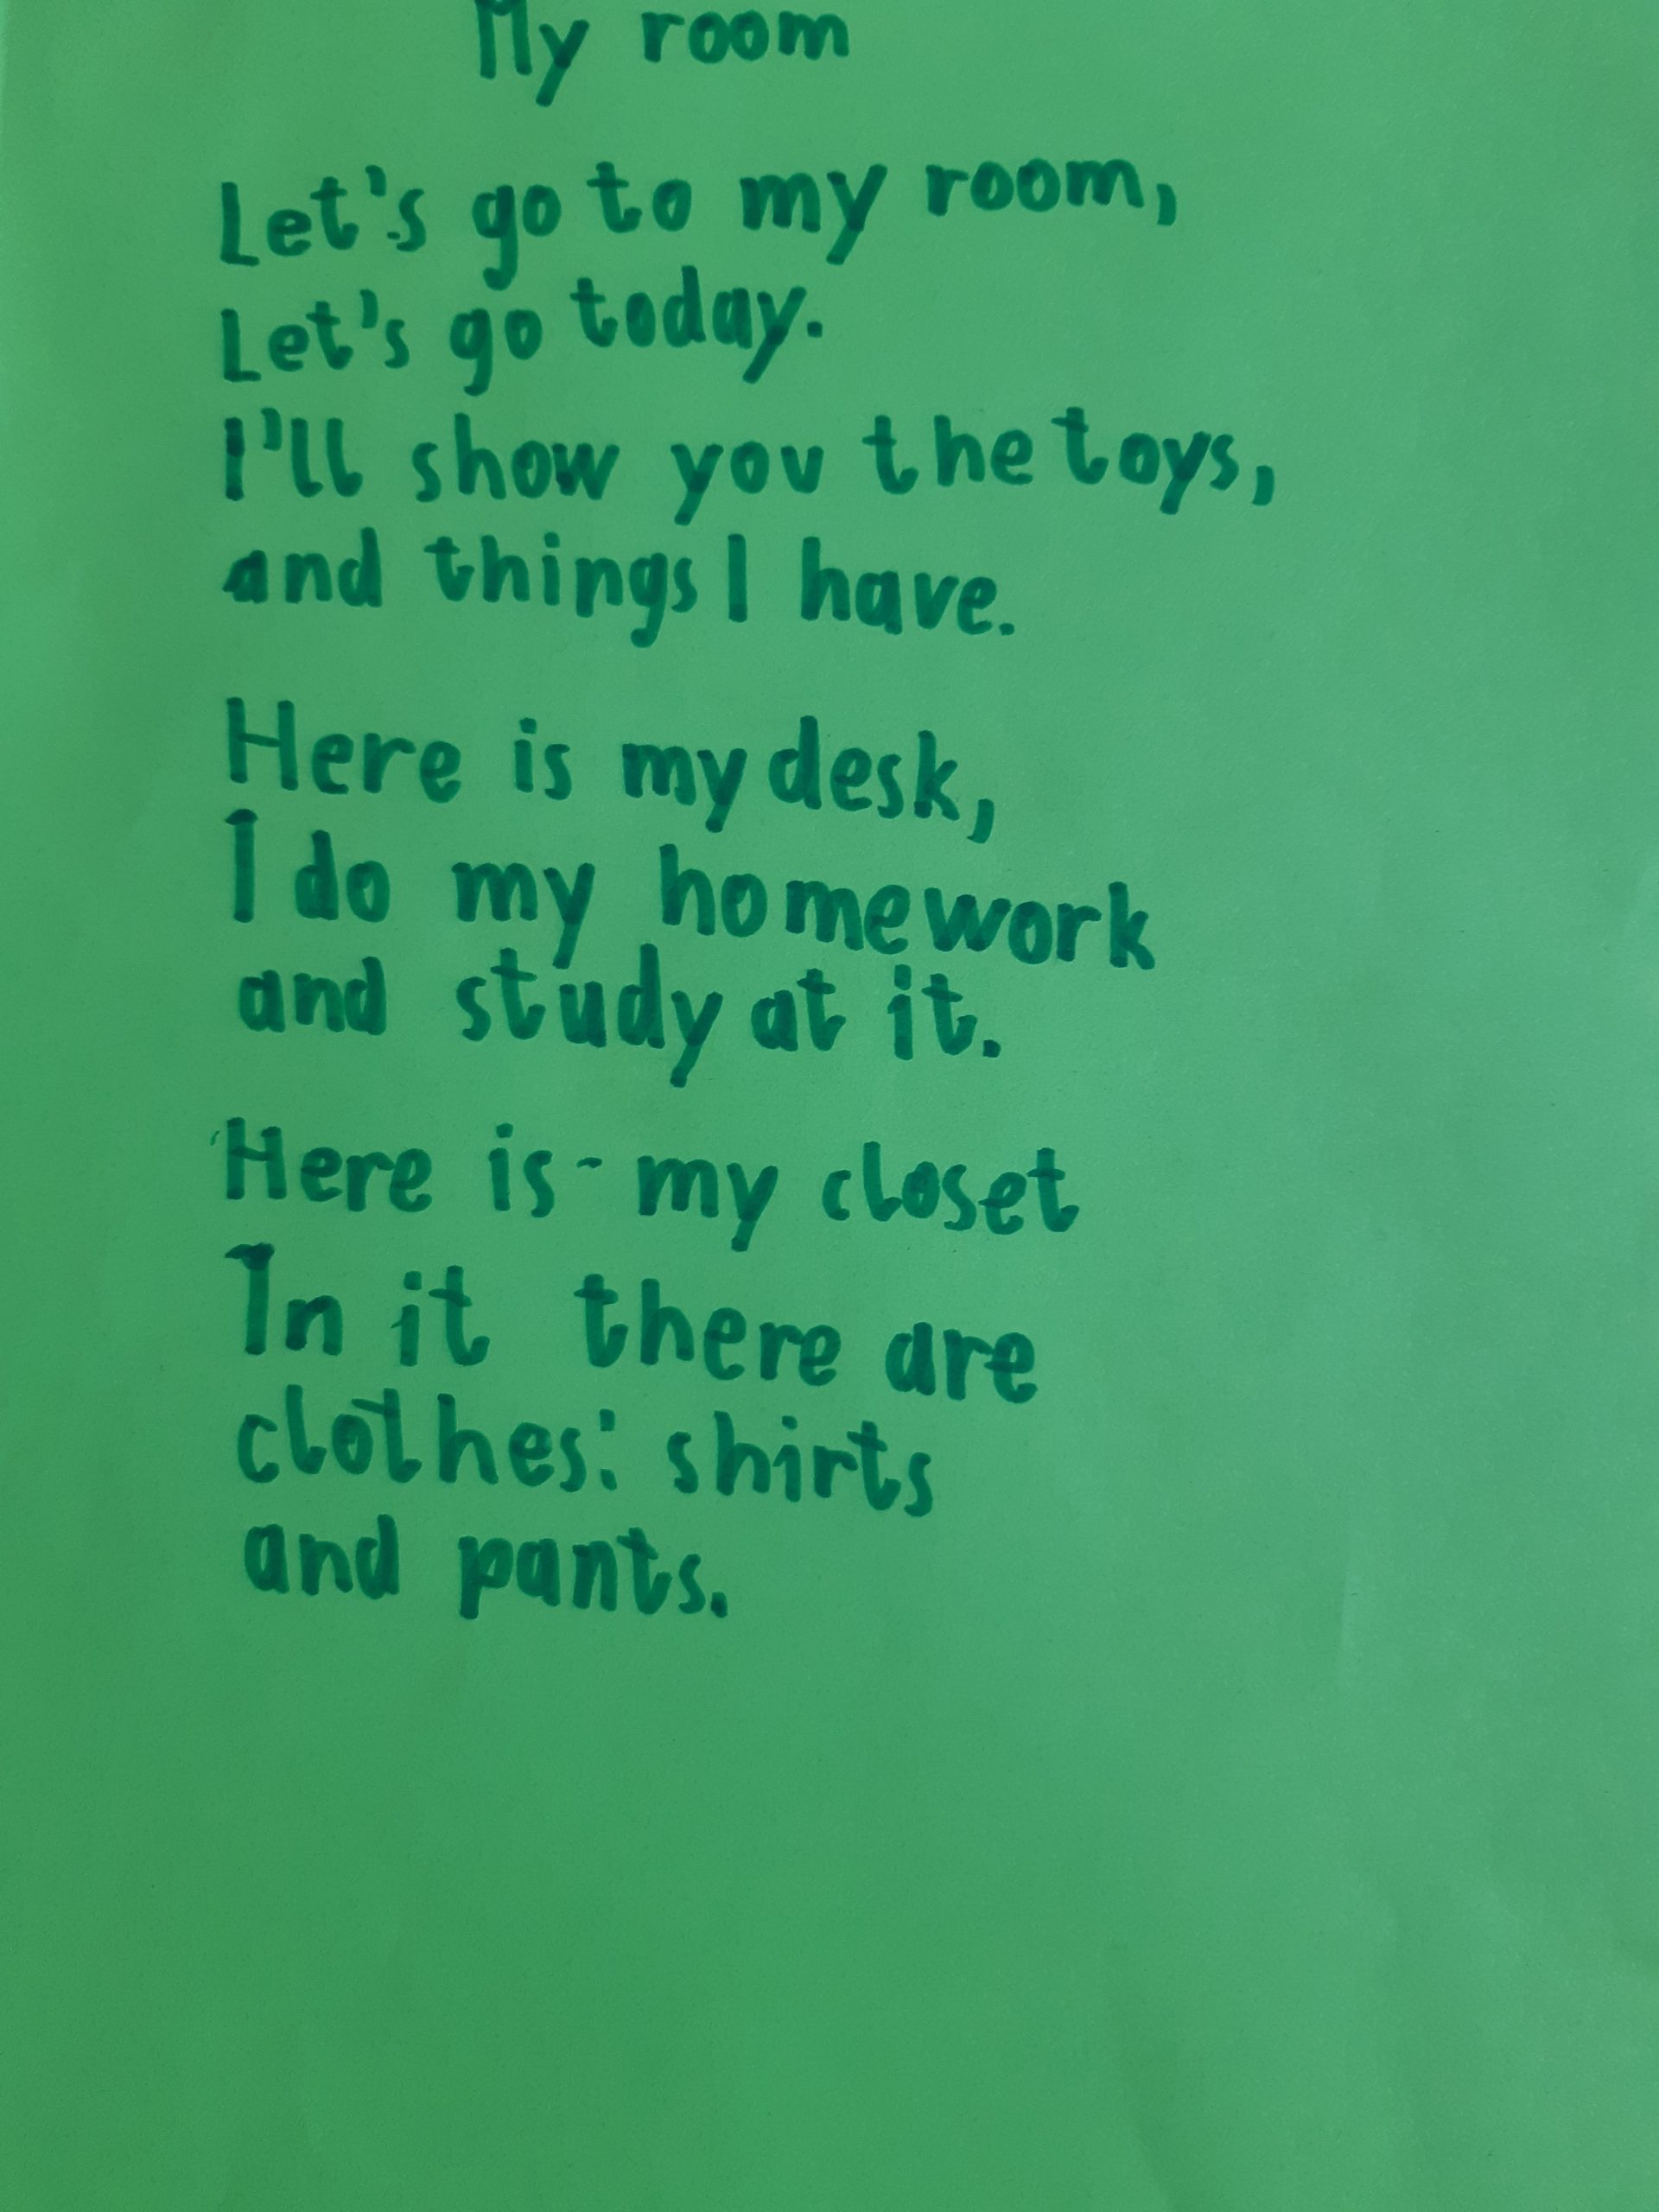 My room
Let's go to my room,
Let's go today.
I'll show you the toys,
and things I have.
Here is my desk,
I do my homework
and study at it.
Here is - my closet
In it there are
clothes: shirts
and pants.